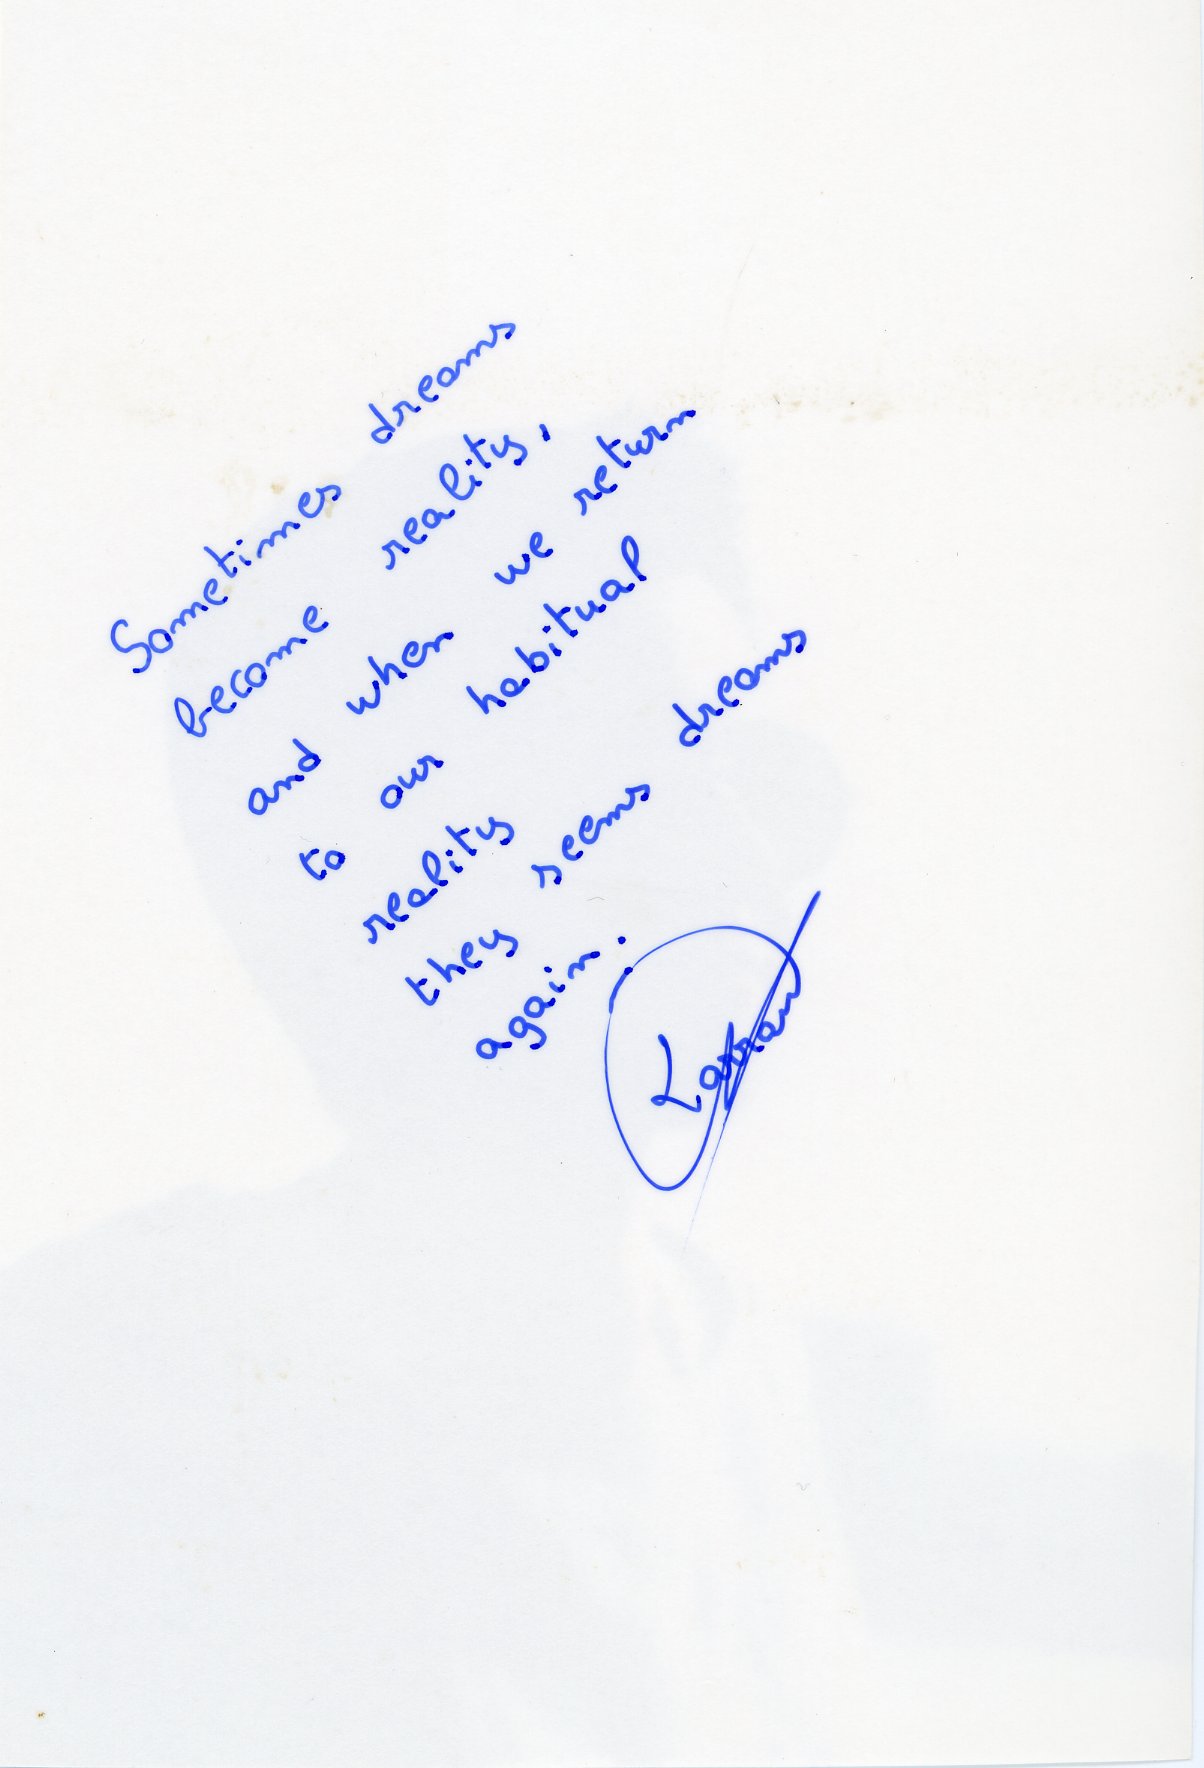 Sometimes dreams
become reality,
and when we return
to our habitual
reality
they seems dreams
again.